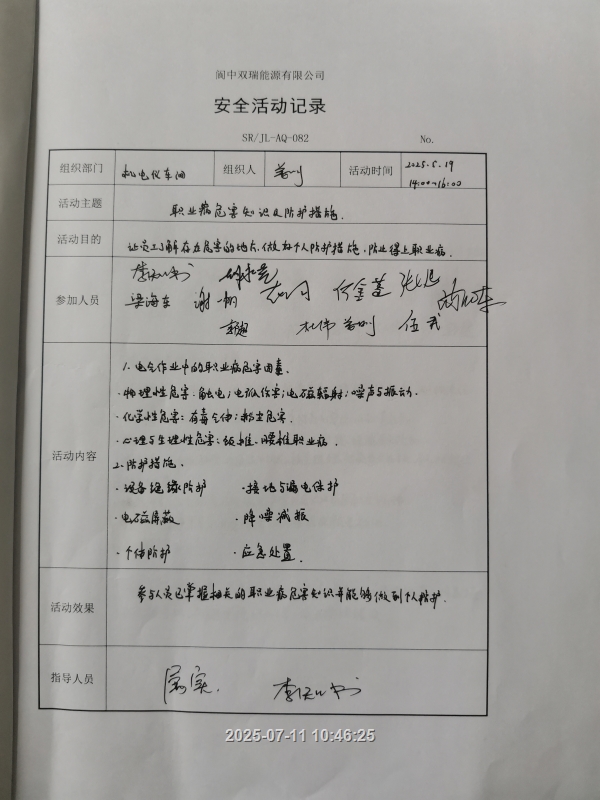 阆中双瑞能源有限公司
安全活动记录
SR/JL-AQ-082 No.
组织部门 机电仪车间 组织人 活动时间 2025.5.19
14:00~16:00
活动主题 职业病危害知识及防护措施.
活动目的 让员工了解存在危害的地点、做好个人防护措施,防止得上职业病.
参加人员
梁海东 谢 何金蓬
赵翅 杜伟 伍武
活动内容
1. 电仪作业中的职业病危害因素.
·物理性危害:触电;电弧伤害;电磁辐射;噪声与振动.
·化学性危害:有毒气体;粉尘危害.
·心理与生理性危害:颈椎、腰椎职业病.
2. 防护措施.
·设备绝缘防护 ·接地与漏电保护
·电磁屏蔽 ·降噪减振
·个体防护 ·应急处置.
活动效果 参与人员已掌握相关的职业病危害知识并能够做到个人防护.
指导人员
2025-07-11 10:46:25